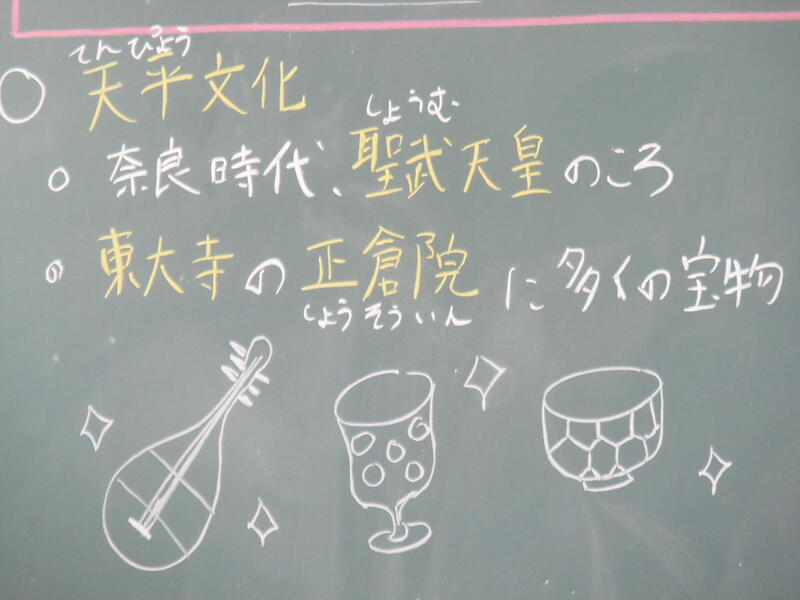 てんぴょう
○ 天平文化
しょうむ
○ 奈良時代、聖武天皇のころ
○ 東大寺の正倉院に多タイの宝物
しょうそういん